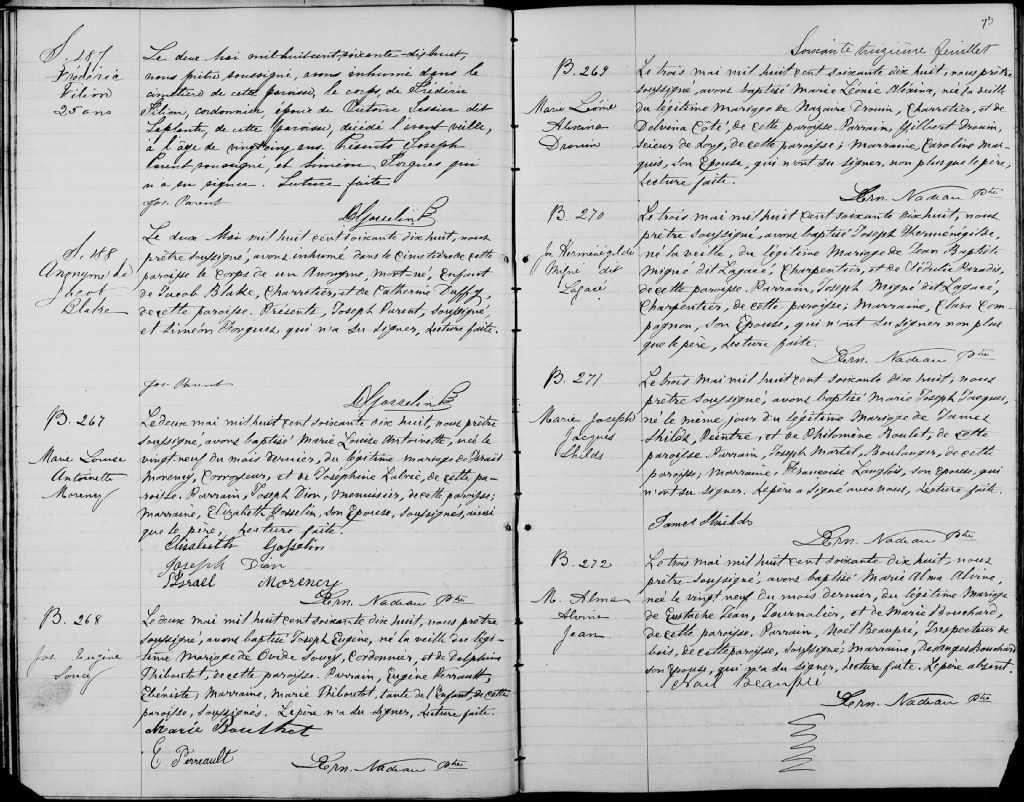 S. 187
Frédéric
Filion
25 ans
Le deux Mai mil huit cent soixante-dix huit,
nous prêtre soussigné, avons inhumé dans le
cimetière de cette paroisse, le corps de Frédéric
Filion, cordonnier, époux de Victoire Tessier dit
Laplante, de cette paroisse, décédé l'avant veille,
à l'âge de vingt cinq ans. Présents Joseph
Parent soussigné, et Siméon Forgues qui
n'a su signer. Lecture faite
Jos. Parent
DGosselin Ptr
S. 188
Anonyme de
Jacob
Blake
Le deux Mai mil huit cent soixante dix huit, nous
prêtre soussigné, avons inhumé dans le Cimetière de cette
paroisse le corps de un Anonyme, mort-né, Enfant
de Jacob Blake, Charretier, et de Catherine Duffy,
de cette paroisse. Présents, Joseph Parent, soussigné,
et Siméon Forgues, qui n'a su signer, Lecture faite.
Jos. Parent
DGosselin Ptr
B. 267
Marie Louise
Antoinette
Morency
Le deux mai mil huit cent soixante dix huit, nous prêtre
soussigné, avons baptisé Marie Louise Antoinette, née le
vingt neuf du mois dernier, du légitime mariage de Israël
Morency, Corroyeur, et de Joséphine Labrie, de cette pa-
roisse. Parrain, Joseph Dion, Menuisier, de cette paroisse;
marraine, Elizabeth Gosselin, son Epouse, soussignés, ainsi
que le père, Lecture faite.
Elisabeth Gosselin
Joseph Dion
Israel Morency
Ern. Nadeau Ptre
B. 268
Jos. Eugène
Soucy
Le deux mai mil huit cent soixante dix huit, nous prêtre
soussigné, avons baptisé Joseph Eugène, né la veille du légi-
time mariage de Ovide Soucy, Cordonnier, et de Delphine
Thiboutot, de cette paroisse. Parrain, Eugène Perrault,
Ebéniste, Marraine, Marie Thiboutot, tante de l'Enfant, de cette
paroisse, soussignés. Le père n'a su signer, Lecture faite.
Marie
E Perreault
Ern. Nadeau Ptre
73
Soixante treizième feuillet
B. 269
Marie Léonie
Alexina
Drouin
Le trois mai mil huit cent soixante dix huit, nous prêtre
soussigné, avons baptisé Marie Léonie Aléxina, née la veille
du légitime mariage de Nazaire Drouin, Charretier, et de
Delvina Côté, de cette paroisse. Parrain, Gilbert Drouin,
Scieur de Long, de cette paroisse; marraine, Caroline Mar-
quis, son Epouse, qui n'ont su signer, non plus que le père,
Lecture faite.
Ern. Nadeau Ptre
B. 270
Js. Herménégilde
Migné dit
Lagacé
Le trois mai mil huit cent soixante dix huit, nous
prêtre soussigné, avons baptisé Joseph Herménégilde,
né la veille, du légitime Mariage de Jean Baptiste
Migné dit Lagacé, Charpentier, et de Sédulie Paradis,
de cette paroisse. Parrain, Joseph Migné dit Lagacé,
Charpentier, de cette paroisse; Marraine, Clara Com-
pagnon, son Epouse, qui n'ont su signer non plus
que le père, Lecture faite.
Ern. Nadeau Ptre
B. 271
Marie Joseph
Jacques
Shilds
Le trois mai mil huit cent soixante dix huit, nous
prêtre soussigné, avons baptisé Marie Joseph Jacques,
né le même jour du légitime Mariage de James
Shilds, Peintre, et de Philomène Boulet, de cette
paroisse. Parrain, Joseph Martel, Boulanger, de cette
paroisse; marraine, Françoise Langlois, son Epouse, qui
n'ont su signer. Le père a signé avec nous, Lecture faite.
James Shields
Ern. Nadeau Ptre
B. 272
M. Alma
Alvine
Jean
Le trois mai mil huit cent soixante dix huit, nous
prêtre soussigné, avons baptisé Marie Alma Alvine,
née le vingt neuf du mois dernier, du légitime Mariage
de Eustache Jean, Journalier, et de Marie Bouchard,
de cette paroisse. Parrain, Noël Beaupré, Inspecteur de
bois, de cette paroisse, soussigné; Marraine, Desanges Bouchard
son Epouse, qui n'a su signer, Lecture faite. Le père absent.
Noël Beaupré
Ern. Nadeau Ptre